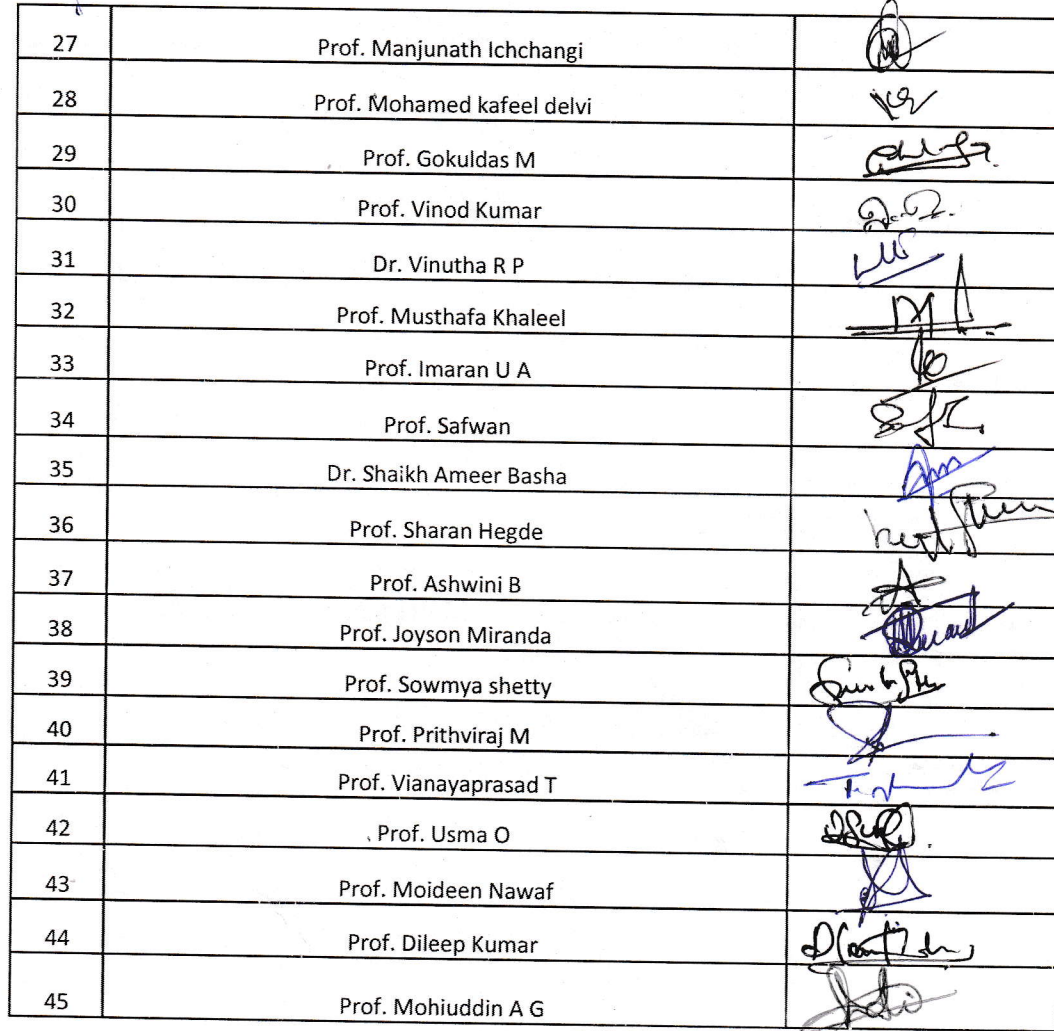 27 Prof. Manjunath Ichchangi
28 Prof. Mohamed kafeel delvi
29 Prof. Gokuldas M
30 Prof. Vinod Kumar
31 Dr. Vinutha R P
32 Prof. Musthafa Khaleel
33 Prof. Imaran U A
34 Prof. Safwan
35 Dr. Shaikh Ameer Basha
36 Prof. Sharan Hegde
37 Prof. Ashwini B
38 Prof. Joyson Miranda
39 Prof. Sowmya shetty
40 Prof. Prithviraj M
41 Prof. Vianayaprasad T
42 Prof. Usma O
43 Prof. Moideen Nawaf
44 Prof. Dileep Kumar
45 Prof. Mohiuddin A G